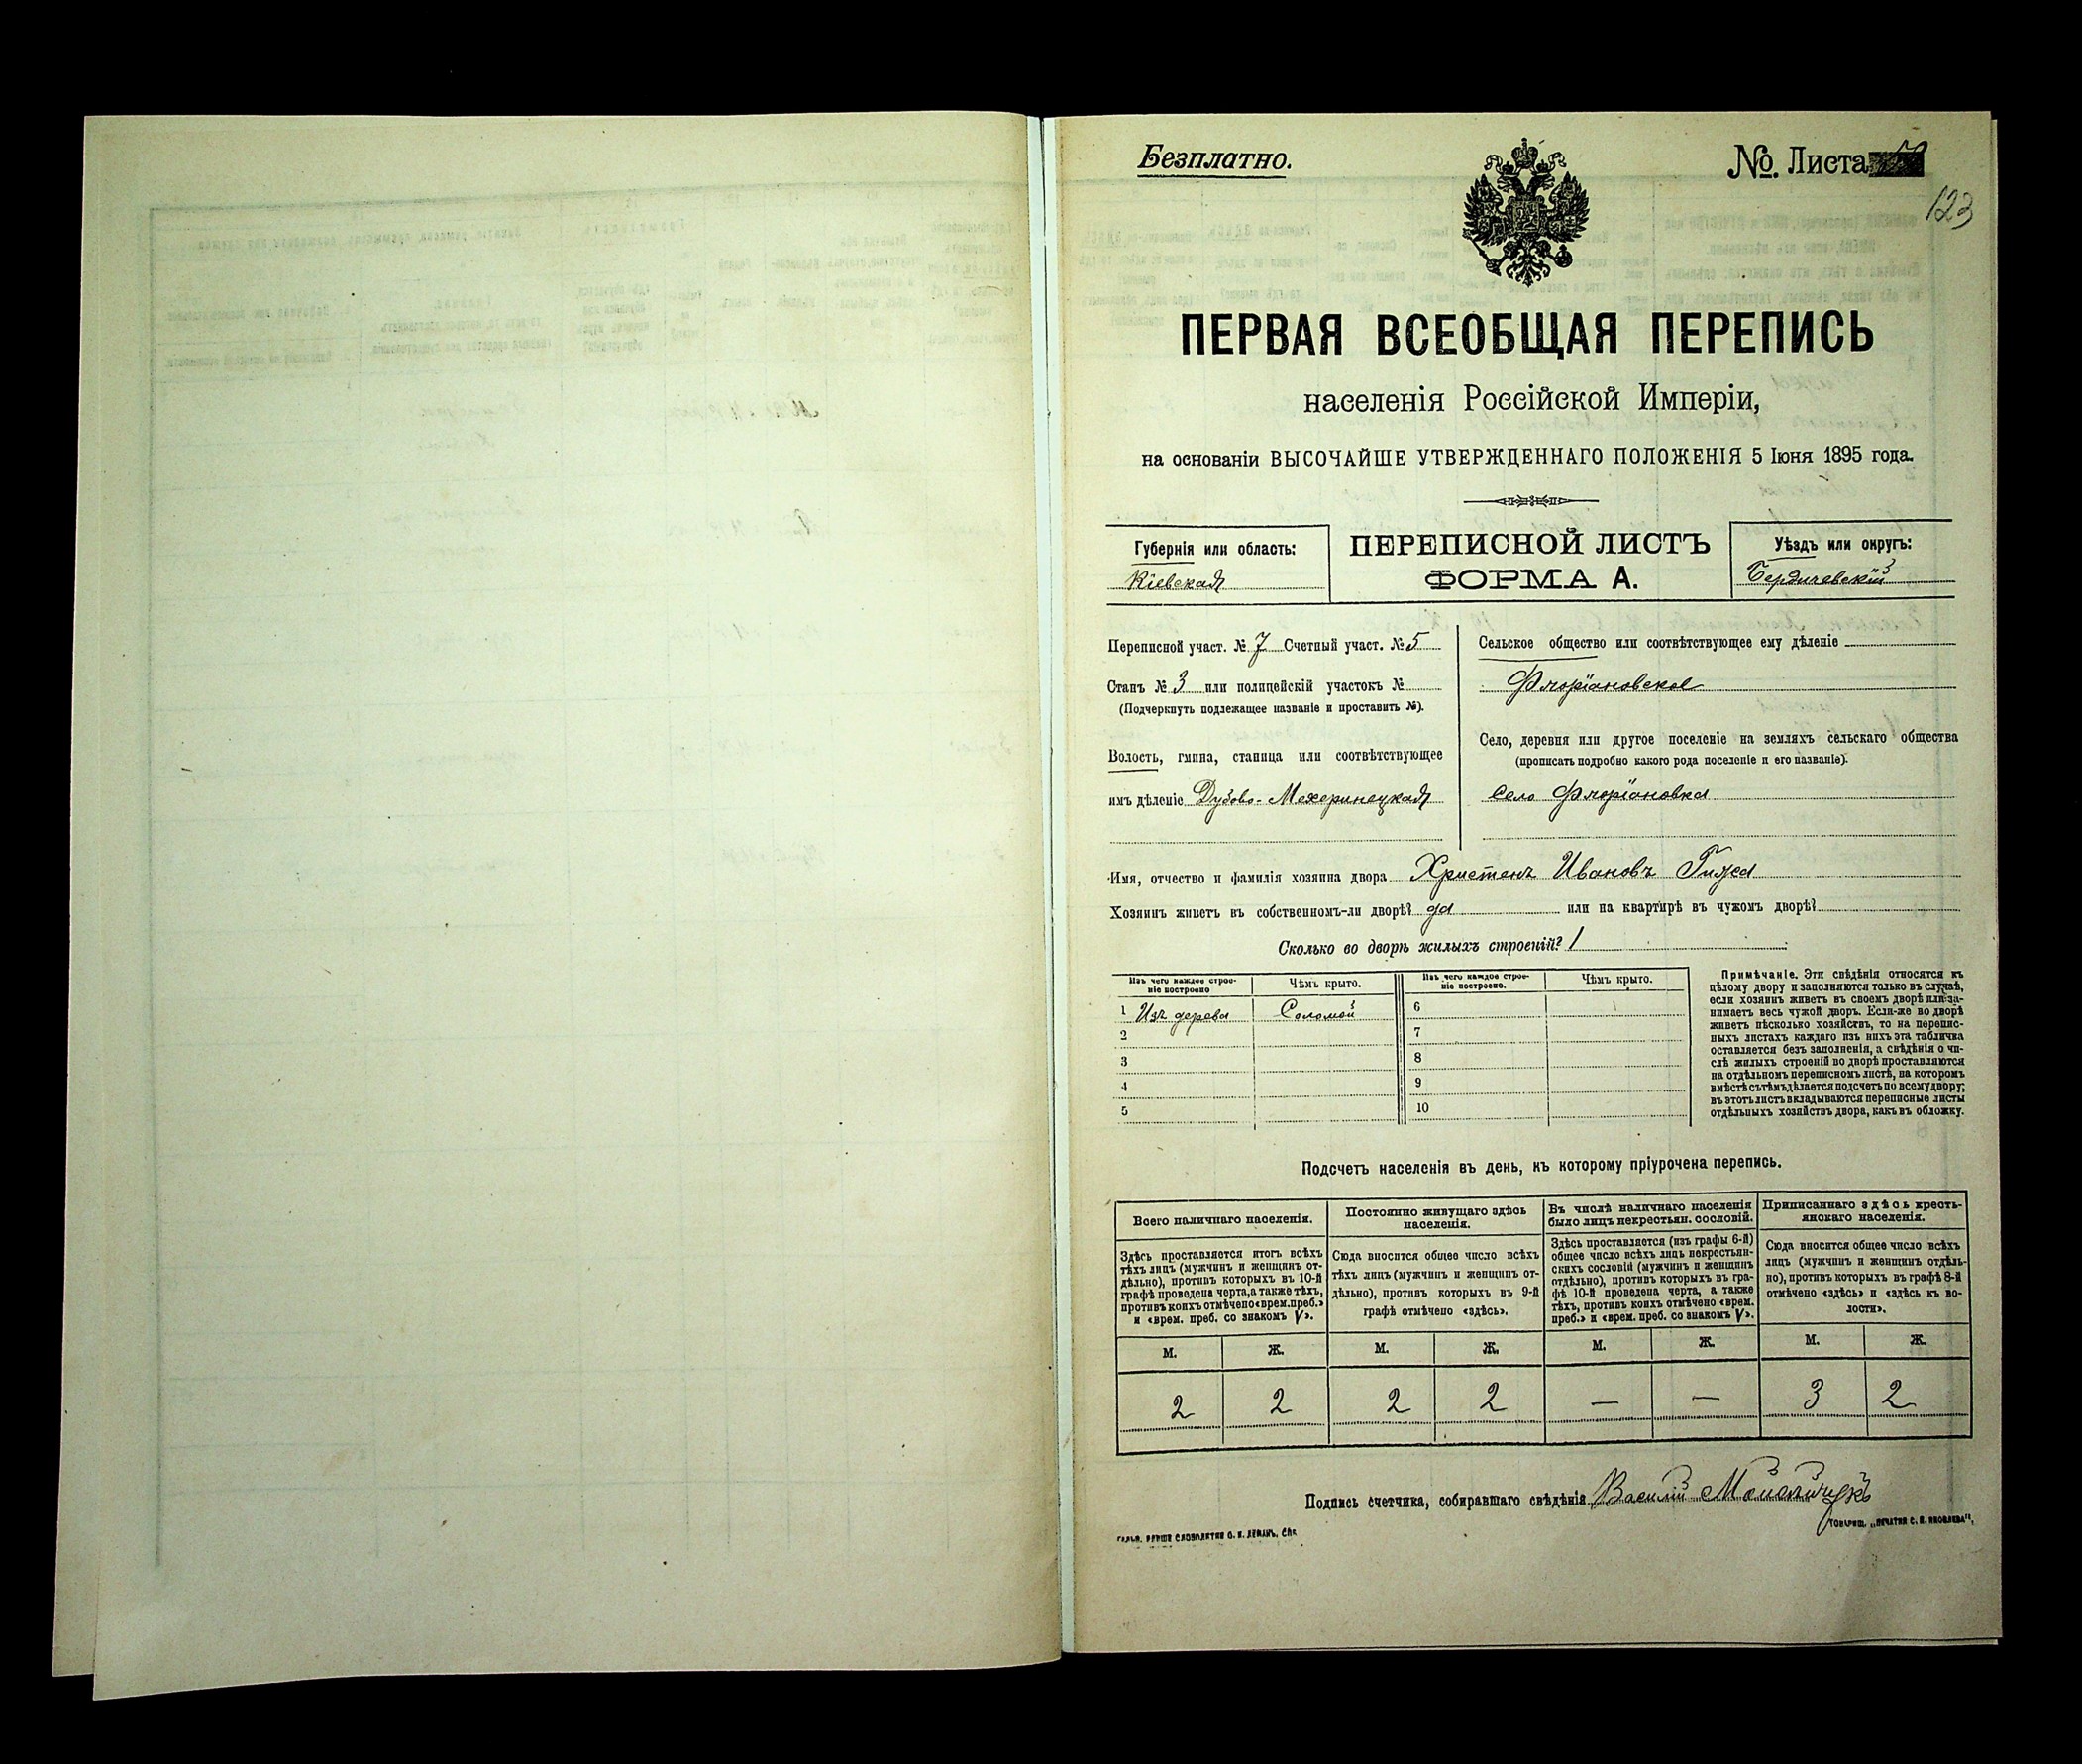 Безплатно.
№. Листа
123
ПЕРВАЯ ВСЕОБЩАЯ ПЕРЕПИСЬ
населенія Россійской Имперіи,
на основаніи ВЫСОЧАЙШЕ УТВЕРЖДЕННАГО ПОЛОЖЕНІЯ 5 Іюня 1895 года.
Губернія или область:
Кіевская
ПЕРЕПИСНОЙ ЛИСТЪ
ФОРМА А.
Уѣздъ или округъ:
Бердичевскій
Переписной участ. № 7 Счетный участ. № 5
Станъ № 3 или полицейскій участокъ №
(Подчеркнуть подлежащее названіе и проставить №).
Волость, гмина, станица или соотвѣтствующее
имъ дѣленіе Дубово-Мехеринецкая
Сельское общество или соотвѣтствующее ему дѣленіе
Флоріановское
Село, деревня или другое поселеніе на земляхъ сельскаго общества
(прописать подробно какого рода поселеніе и его названіе).
село Флоріановка
Имя, отчество и фамилія хозяина двора Иванов
Хозяинъ живетъ въ собственномъ-ли дворѣ? да или на квартирѣ въ чужомъ дворѣ?
Сколько во дворѣ жилыхъ строеній? 1
Изъ чего каждое строе-
ніе построено
Чѣмъ крыто.
Изъ чего каждое строе-
ніе построено.
Чѣмъ крыто.
1 Изъ дерева Соломой 6
2 7
3 8
4 9
5 10
Примѣчаніе. Эти свѣдѣнія относятся къ
цѣлому двору и заполняются только въ случаѣ,
если хозяинъ живетъ въ своемъ дворѣ или за-
нимаетъ весь чужой дворъ. Если-же во дворѣ
живетъ нѣсколько хозяйствъ, то на перепис-
ныхъ листахъ каждаго изъ нихъ эта табличка
оставляется безъ заполненія, а свѣдѣнія о чи-
слѣ жилыхъ строеній во дворѣ проставляются
на отдѣльномъ переписномъ листѣ, на которомъ
вмѣстѣ съ тѣмъ дѣлается подсчетъ по всему двору;
въ этотъ листъ вкладываются переписные листы
отдѣльныхъ хозяйствъ двора, какъ въ обложку.
Подсчетъ населенія въ день, къ которому пріурочена перепись.
Всего наличнаго населенія.
Здѣсь проставляется итогъ всѣхъ
тѣхъ лицъ (мужчинъ и женщинъ от-
дѣльно), противъ которыхъ въ 10-й
графѣ проведена черта, а также тѣхъ,
противъ коихъ отмѣчено «врем. преб.»
и «врем. преб. со знакомъ V».
Постоянно живущаго здѣсь
населенія.
Сюда вносится общее число всѣхъ
тѣхъ лицъ (мужчинъ и женщинъ от-
дѣльно), противъ которыхъ въ 9-й
графѣ отмѣчено «здѣсь».
Въ числѣ наличнаго населенія
было лицъ некрестьян. сословій.
Здѣсь проставляется (изъ графы 6-й)
общее число всѣхъ лицъ некрестьян-
скихъ сословій (мужчинъ и женщинъ
отдѣльно), противъ которыхъ въ гра-
фѣ 10-й проведена черта, а также
тѣхъ, противъ коихъ отмѣчено «врем.
преб.» и «врем. преб. со знакомъ V».
Приписаннаго здѣсь кресть-
янскаго населенія.
Сюда вносится общее число всѣхъ
лицъ (мужчинъ и женщинъ отдѣль-
но), противъ которыхъ въ графѣ 8-й
отмѣчено «здѣсь» и «здѣсь къ во-
лости».
М. Ж. М. Ж. М. Ж. М. Ж.
2 2 2 2 — — 3 2
Подпись счетчика, собиравшаго свѣдѣнія Василій